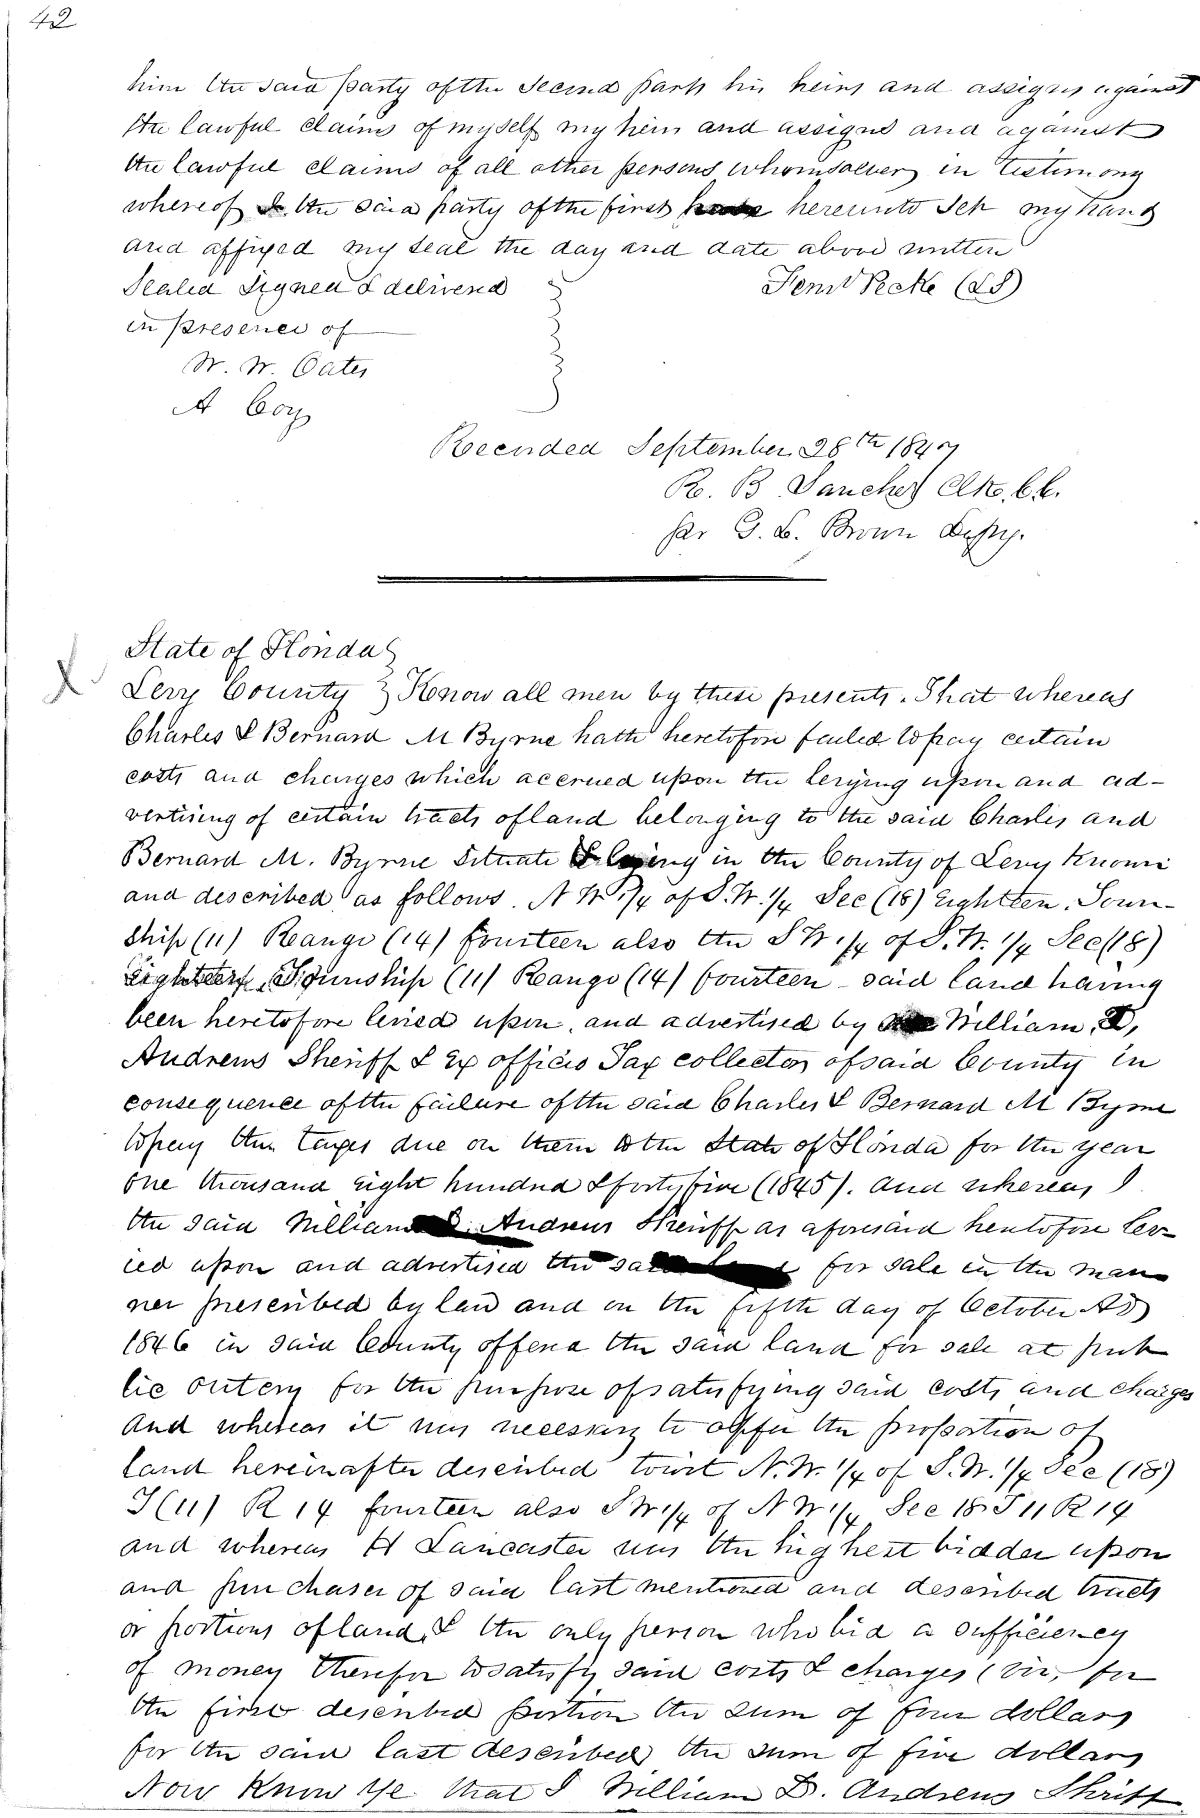 42
him the said party of the second part his heirs and assigns against
the lawful claims of myself my heirs and assigns and against
the lawful claims of all other persons whomsoever, in testimony
whereof I the said party of the first hereunto set my hand
and affixed my seal the day and date above written
Sealed Signed & delivered
in presence of
W. W. Oates
A Coy
(LS)
Recorded September 28th 1847
R. B Sanchez Clk. C.C.
par G. L. Brown Depy.
State of Florida
Levy County } Know all men by these presents. That whereas
Charles & Bernard M Byrne hath heretofore failed to pay certain
costs and charges which accrued upon the levying upon and ad-
vertising of certain tracts of land belonging to the said Charles and
Bernard M. Byrne Situate & laying in the County of Levy Known
and described as follows. N W. 1/4 of S. W. 1/4 Sec (18) Eighteen. Town-
ship (11) Range (14) fourteen also the S W. 1/4 of S. W. 1/4 Sec (18)
Eighteen, Township (11) Range (14) fourteen - said land having
been heretofore levied upon, and advertised by William, D,
Andrews Sheriff & Ex officio Tax collector, of said County in
consequence of the failure of the said Charles & Bernard M Byrne
to pay the taxes due on them to the State of Florida for the year
one thousand eight hundred & forty five (1845). and whereas I
the said William D. Andrews Sheriff as aforesaid heretofore lev-
ied upon and advertised the said land for sale in the man
ner prescribed by law and on the fifth day of October AD
1846 in said County offered the said land for sale at pub
lic outcry for the purpose of satisfying said costs and charges
And whereas it was necessary to offer the proportion of
land hereinafter described towit N. W. 1/4 of S. W. 1/4 Sec (18)
T (11) R 14 fourteen also S W 1/4 of N W 1/4 Sec 18 T 11 R 14
and whereas H Lancaster was the highest bidder upon
and purchaser of said last mentioned and described tracts
or portions of land, & the only person who bid a sufficiency
of money therefor to satisfy said costs & charges (viz, for
the first described portion the sum of four dollars
for the said last described the sum of five dollars
Now Know Ye that I William D. Andrews Shriff